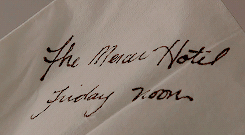 The Mercer Hotel
Friday noon